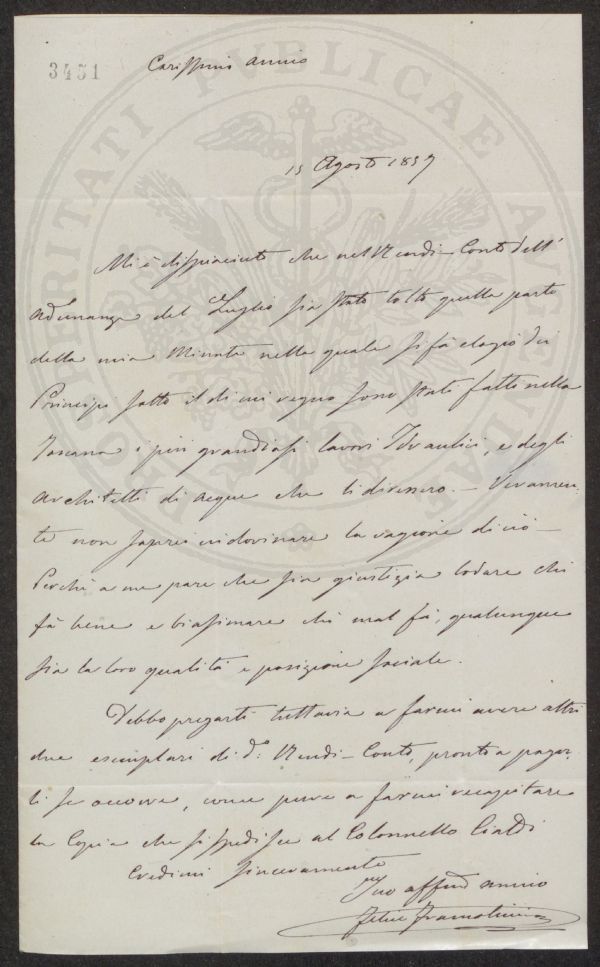 3451
Carissimo Amico
15 Agosto 1857
Mi è dispiaciuto che nel Rendi-Conto dell'
Adunanza del Luglio sia stato tolto quella parte
della mia Minuta nella quale si fà elogio dei
Principi sotto il di cui regno sono stati fatti nella
Toscana i più grandiosi lavori Idraulici, e degli
Architetti di acque che li diressero. – Veramen-
te non saprei indovinare la ragione di ciò –
Perchè a me pare che sia giustizia lodare chi
fà bene e biasimare chi mal fà, qualunque
sia la loro qualità e posizione sociale.
Debbo pregarti tuttavia a farmi avere altri
due esemplari di d.o Rendi-Conto, pronto a pagar-
li se occorre, come pure a farmi recapitare
la Copia che si spedisce al Colonnello Cialdi
Credimi sinceramente
Tuo affmo amico
Felice Francolini
PUBLICAE